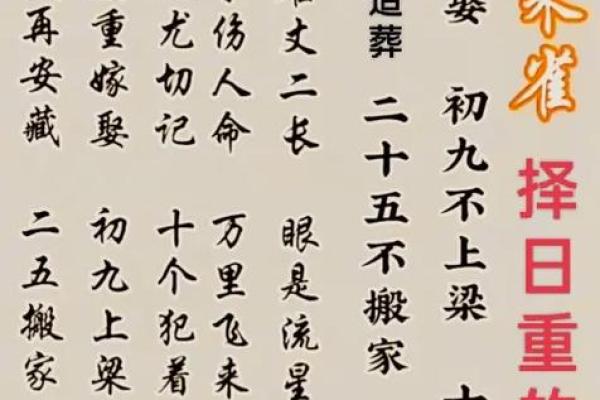 朱雀 择日重
娶 初九不上梁
葬 二十五不搬家
丈二长 眼是流星
伤人命 万里飞来
尤切记 十个犯着
重嫁娶 初九上梁
再安藏 二五搬家